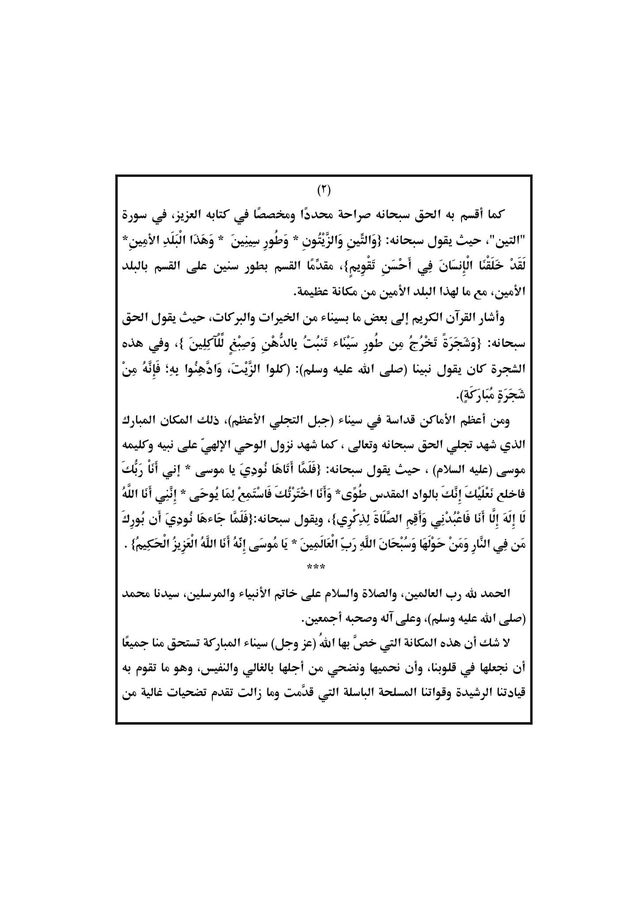 (٢)
كما أقسم به الحق سبحانه صراحة محددًا ومخصصًا في كتابه العزيز، في سورة
"التين"، حيث يقول سبحانه: {وَالتِّينِ وَالزَّيْتُونِ * وَطُورِ سِينِينَ * وَهَذَا الْبَلَدِ الأمِينِ*
لَقَدْ خَلَقْنَا الْإِنسَانَ فِي أَحْسَنِ تَقْوِيمٍ}، مقدِّمًا القسم بطور سنين على القسم بالبلد
الأمين، مع ما لهذا البلد الأمين من مكانة عظيمة.
وأشار القرآن الكريم إلى بعض ما بسيناء من الخيرات والبركات، حيث يقول الحق
سبحانه: {وَشَجَرَةً تَخْرُجُ مِن طُورِ سَيْنَاء تَنبُتُ بِالدُّهْنِ وَصِبْغٍ لِّلْآكِلِينَ }، وفي هذه
الشجرة كان يقول نبينا (صلى الله عليه وسلم): (كلوا الزَّيْتَ، وَادَّهِنُوا بِهِ؛ فَإِنَّهُ مِنْ
شَجَرَةٍ مُبَارَكَةٍ).
ومن أعظم الأماكن قداسة في سيناء (جبل التجلي الأعظم)، ذلك المكان المبارك
الذي شهد تجلي الحق سبحانه وتعالى ، كما شهد نزول الوحي الإلهيّ على نبيه وكليمه
موسى (عليه السلام) ، حيث يقول سبحانه: {فَلَمَّا أَتَاهَا نُودِيَ يا موسى * إني أَنَاْ رَبُّكَ
فاخلع نَعْلَيْكَ إِنَّكَ بالواد المقدس طُوًى* وَأَنَا اخْتَرْتُكَ فَاسْتَمِعْ لِمَا يُوحَى * إِنَّنِي أَنَا اللَّهُ
لَا إِلَهَ إِلَّا أَنَا فَاعْبُدْنِي وَأَقِمِ الصَّلَاةَ لِذِكْرِي}، ويقول سبحانه:{فَلَمَّا جَاءهَا نُودِيَ أَن بُورِكَ
مَن فِي النَّارِ وَمَنْ حَوْلَهَا وَسُبْحَانَ اللَّهِ رَبِّ الْعَالَمِينَ * يَا مُوسَى إِنَّهُ أَنَا اللَّهُ الْعَزِيزُ الْحَكِيمُ} .
***
الحمد لله رب العالمين، والصلاة والسلام على خاتم الأنبياء والمرسلين، سيدنا محمد
(صلى الله عليه وسلم)، وعلى آله وصحبه أجمعين.
لا شك أن هذه المكانة التي خصَّ بها اللهُ (عز وجل) سيناء المباركة تستحق منا جميعًا
أن نجعلها في قلوبنا، وأن نحميها ونضحي من أجلها بالغالي والنفيس، وهو ما تقوم به
قيادتنا الرشيدة وقواتنا المسلحة الباسلة التي قدَّمت وما زالت تقدم تضحيات غالية من